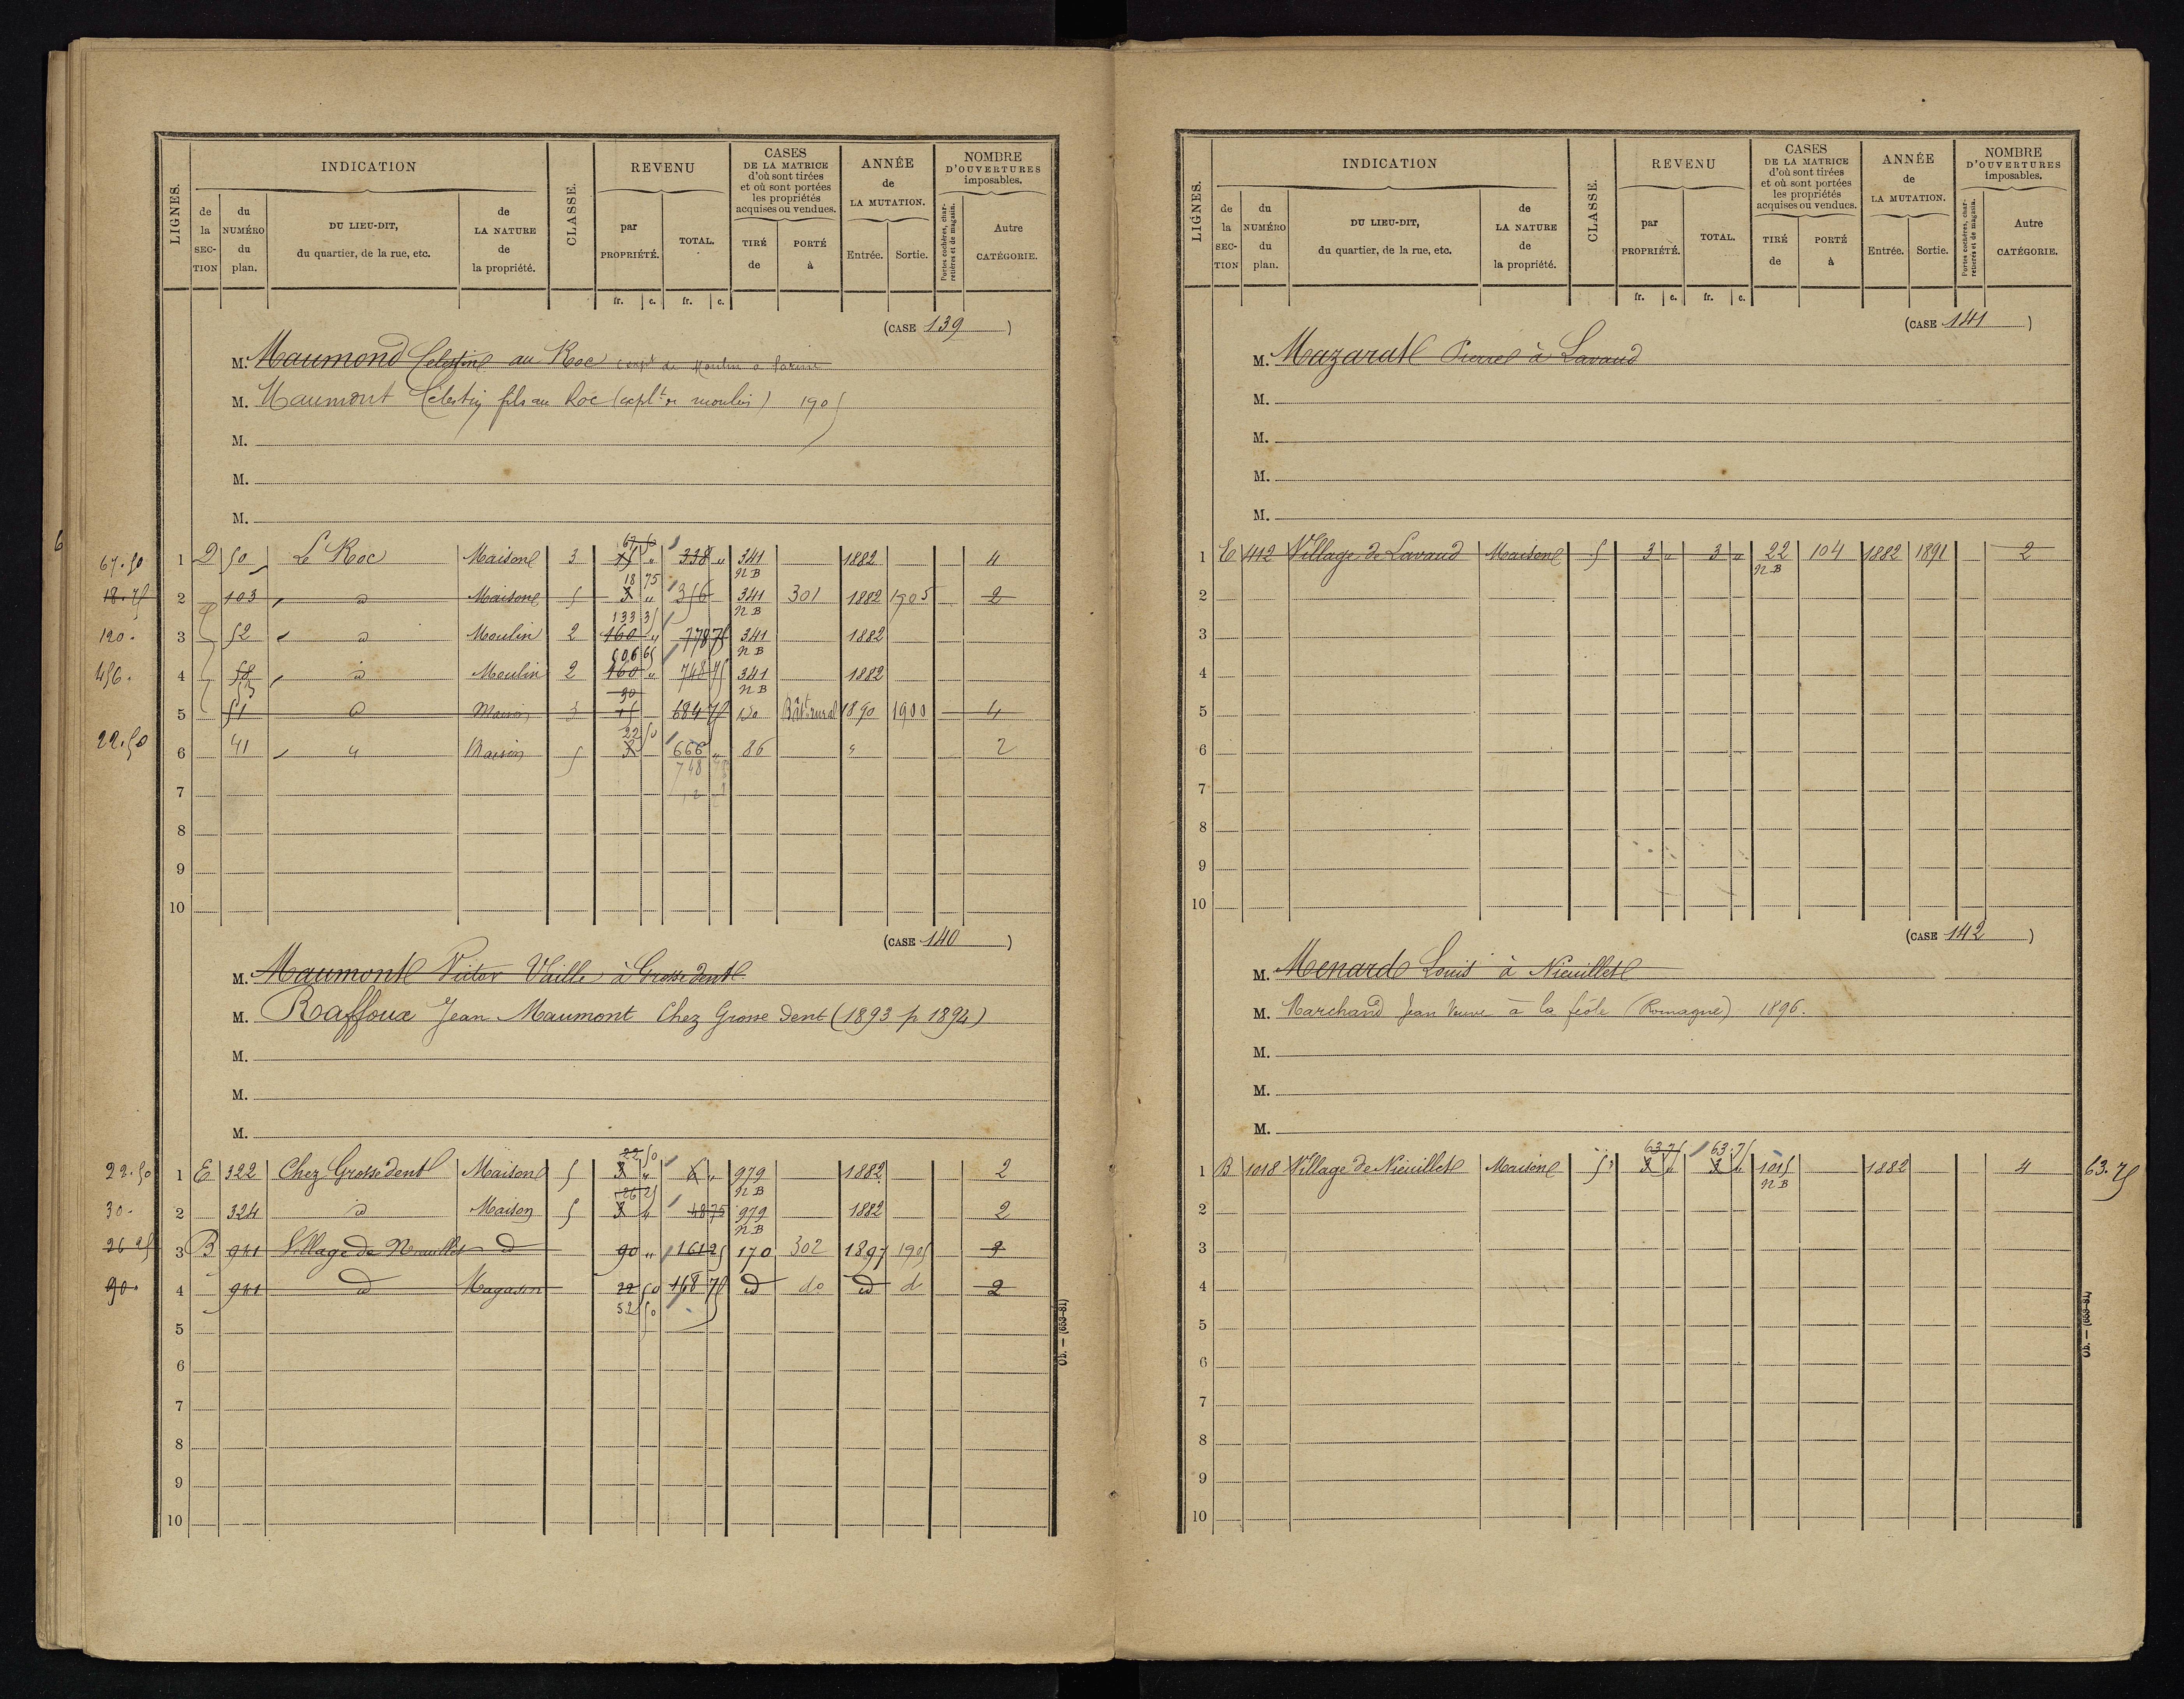 LIGNES. INDICATION CLASSE. REVENU CASES DE LA MATRICE d'où sont tirées et où sont portées les propriétés acquises ou vendues. ANNÉE de LA MUTATION. NOMBRE D'OUVERTURES imposables.
de la SECTION du NUMÉRO du plan. DU LIEU-DIT, du quartier, de la rue, etc. de LA NATURE de la propriété. par PROPRIÉTÉ. TOTAL. TIRÉ de PORTÉ à Entrée. Sortie. Portes cochères, charretières et de magasin. Autre CATÉGORIE.
fr. c. fr. c.
(CASE 139)
M. Maumond Celestin au Roc de Moulin a farine
M. Maumont Célestin fils au Roc (explt de moulin) 1905
M.
M.
M.
67.50 1 D 50 Le Roc Maison 3 67 50 15 " 338 " 341 NB 1882 4
18.75 2 103 d Maison 5 18 75 3 " 356 341 NB 301 1882 1905 2
120. 3 52 d Moulin 2 133 35 160 " 778 75 341 NB 1882
456. 4 58 53 d Moulin 2 506 65 160 " 748 75 341 NB 1882
5 51 d Maison 3 30 15 684 75 150 Bât rural 1890 1900 4
22.50 6 41 " Maison 5 22 50 3 666 " 86 " 2
748
7
8
9
10
(CASE 140)
M. Maumont Victor Vaille à Grosse dent
M. Raffoux Jean Maumont Chez Grosse Dent (1893 p 1894)
M.
M.
M.
22.50 1 E 322 Chez Grosse dent Maison 5 22 50 3 " 6 " 979 NB 1882 2
30. 2 324 d Maison 5 26 25 3 " 48 75 979 NB 1882 2
26 25 3 B 941 Village de Nieuillet d 90 " 161 25 170 302 1897 1905 2
90. 4 941 d Magasin 22 50 168 75 d do d d 2
52 50
5
6
7
8
9
10
Ob. — (653-81)
LIGNES. INDICATION CLASSE. REVENU CASES DE LA MATRICE d'où sont tirées et où sont portées les propriétés acquises ou vendues. ANNÉE de LA MUTATION. NOMBRE D'OUVERTURES imposables.
de la SECTION du NUMÉRO du plan. DU LIEU-DIT, du quartier, de la rue, etc. de LA NATURE de la propriété. par PROPRIÉTÉ. TOTAL. TIRÉ de PORTÉ à Entrée. Sortie. Portes cochères, charretières et de magasin. Autre CATÉGORIE.
fr. c. fr. c.
(CASE 141)
M. Mazarat Pierre à Lavaud
M.
M.
M.
M.
1 E 412 Village de Lavaud Maison 5 3 " 3 " 22 NB 104 1882 1891 2
2
3
4
5
6
7
8
9
10
(CASE 142)
M. Menard Louis à Nieuillet
M. Marchand Jean Veuve à la féole (Romagne) 1896.
M.
M.
M.
1 B 1018 Village de Nieuillet Maison 5 63.75 3 " 63.75 3 " 1015 NB 1882 4 63.75
2
3
4
5
6
7
8
9
10
Ob. — (653-81)